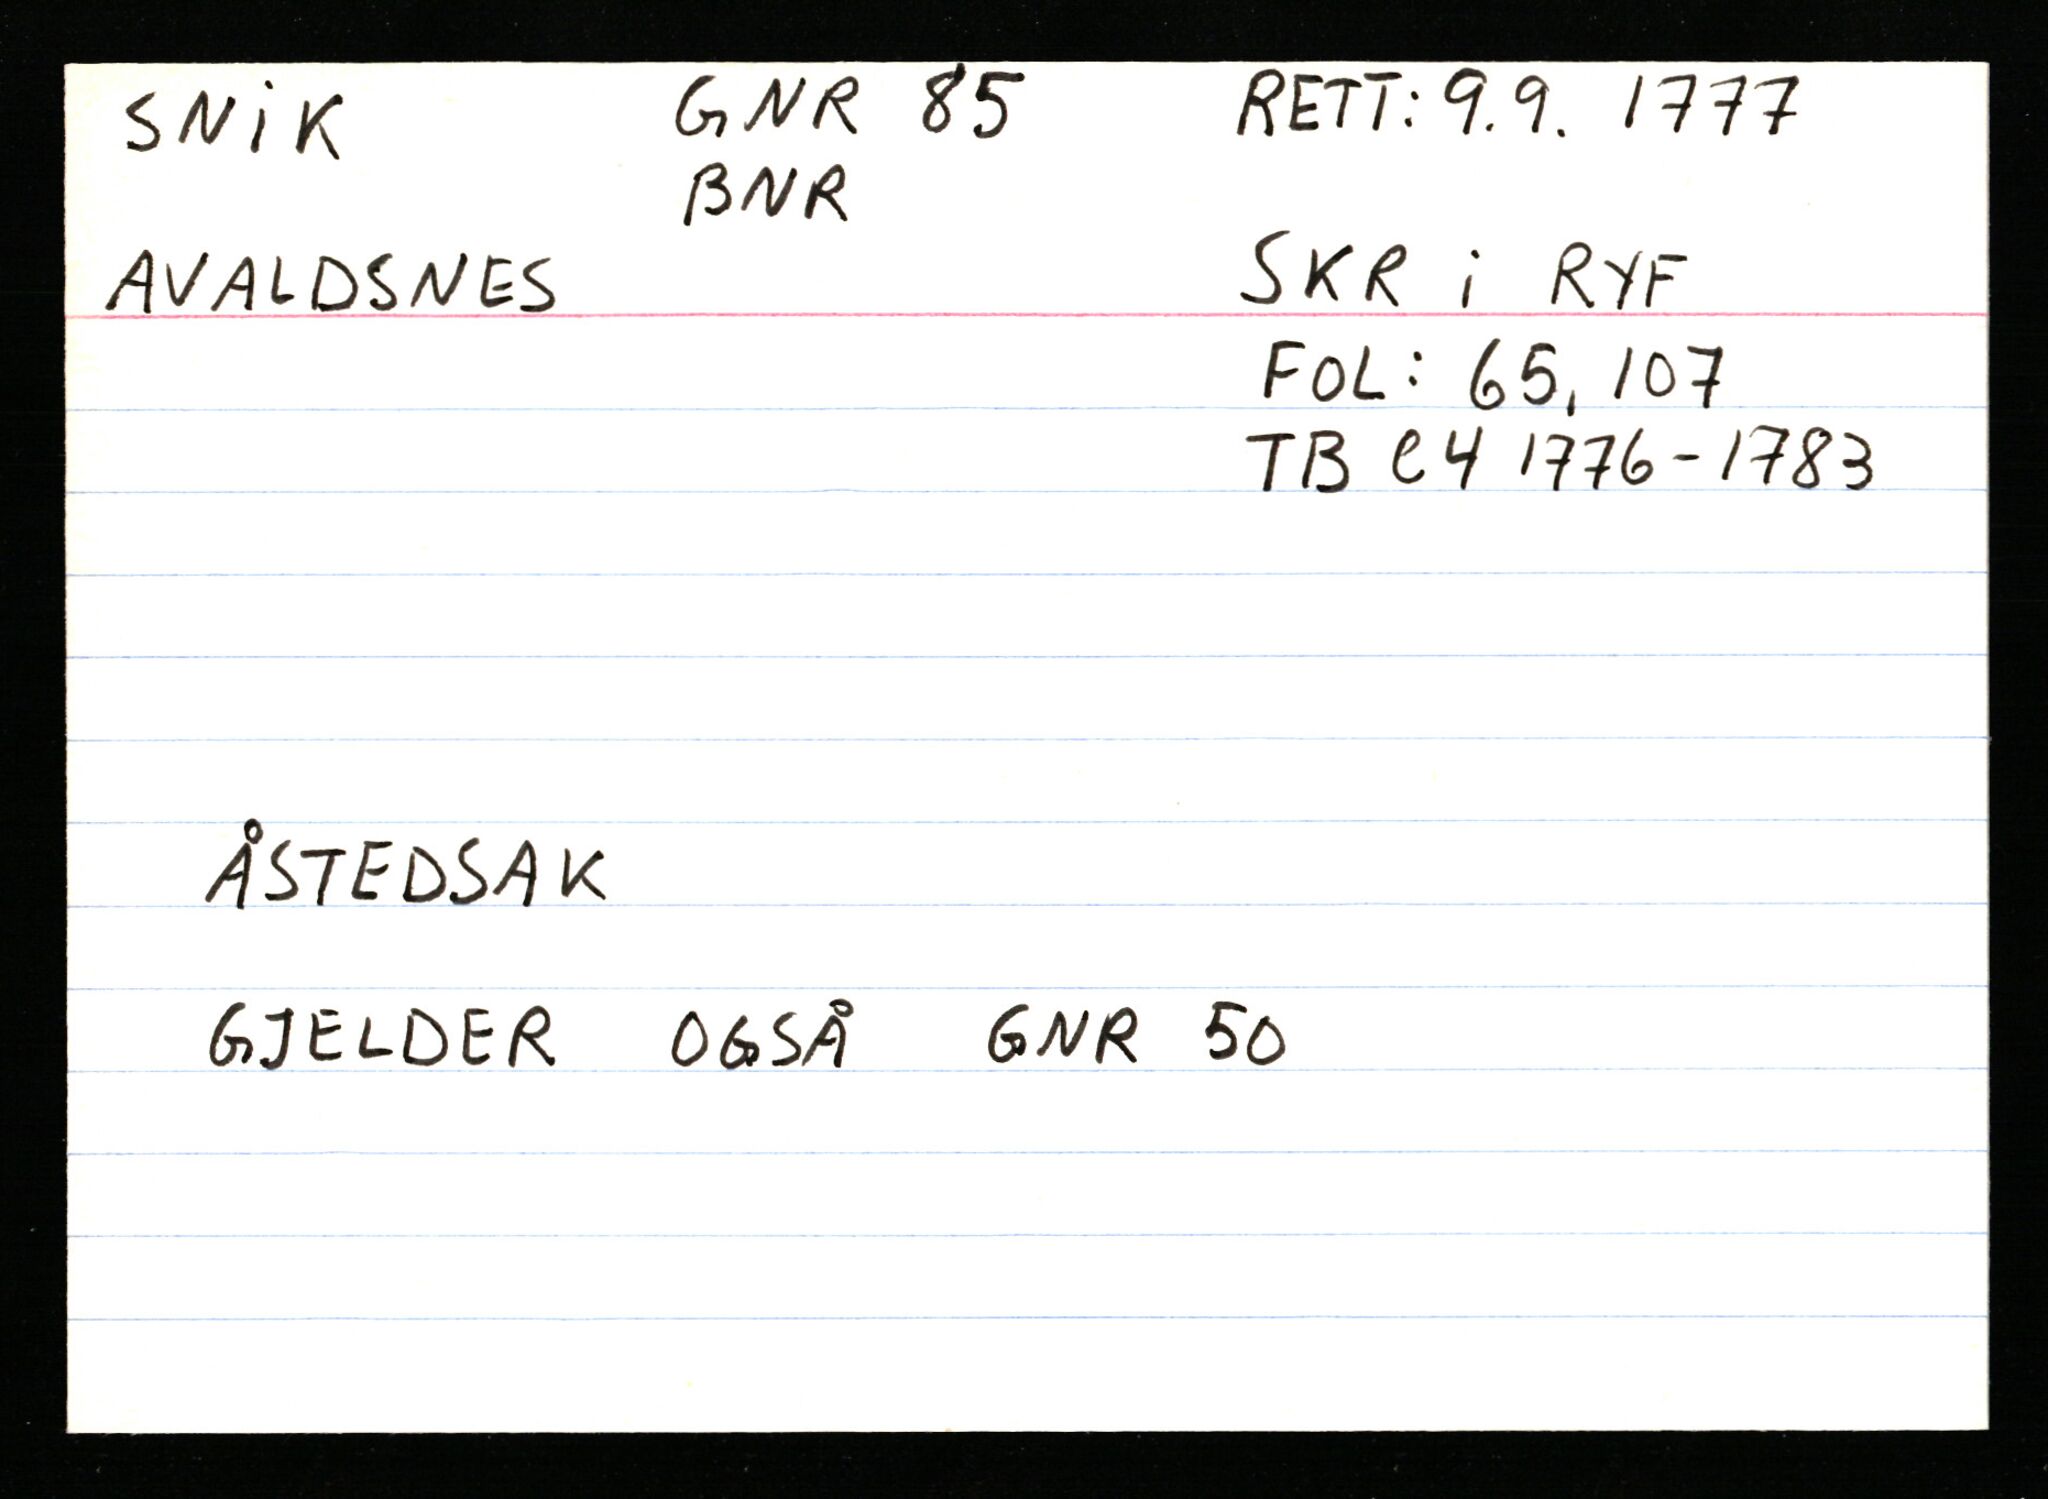 SNiK GNR 85 RETT: 9.9. 1777
BNR
AVALDSNES SKR i RYF
FOL: 65, 107
TB C4 1776-1783
ÅSTEDSAK
GJELDER OGSÅ GNR 50